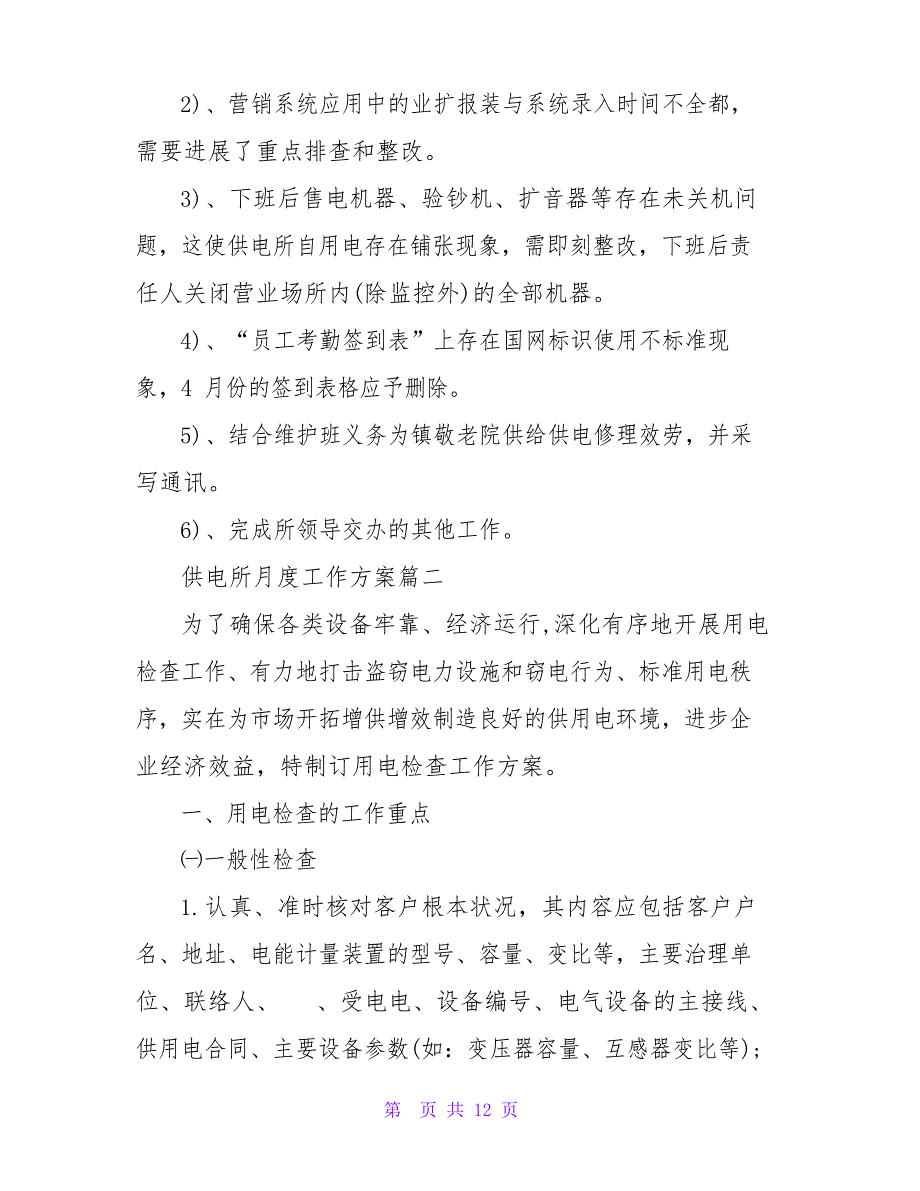 2)、营销系统应用中的业扩报装与系统录入时间不全都，
需要进展了重点排查和整改。
3)、下班后售电机器、验钞机、扩音器等存在未关机问
题，这使供电所自用电存在铺张现象，需即刻整改，下班后责
任人关闭营业场所内(除监控外)的全部机器。
4)、“员工考勤签到表”上存在国网标识使用不标准现
象，4 月份的签到表格应予删除。
5)、结合维护班义务为镇敬老院供给供电修理效劳，并采
写通讯。
6)、完成所领导交办的其他工作。
供电所月度工作方案篇二
为了确保各类设备牢靠、经济运行,深化有序地开展用电
检查工作、有力地打击盗窃电力设施和窃电行为、标准用电秩
序，实在为市场开拓增供增效制造良好的供用电环境，进步企
业经济效益，特制订用电检查工作方案。
一、用电检查的工作重点
㈠一般性检查
1.认真、准时核对客户根本状况，其内容应包括客户户
名、地址、电能计量装置的型号、容量、变比等，主要治理单
位、联络人、 、受电电、设备编号、电气设备的主接线、
供用电合同、主要设备参数(如：变压器容量、互感器变比等);
第 页 共 12 页